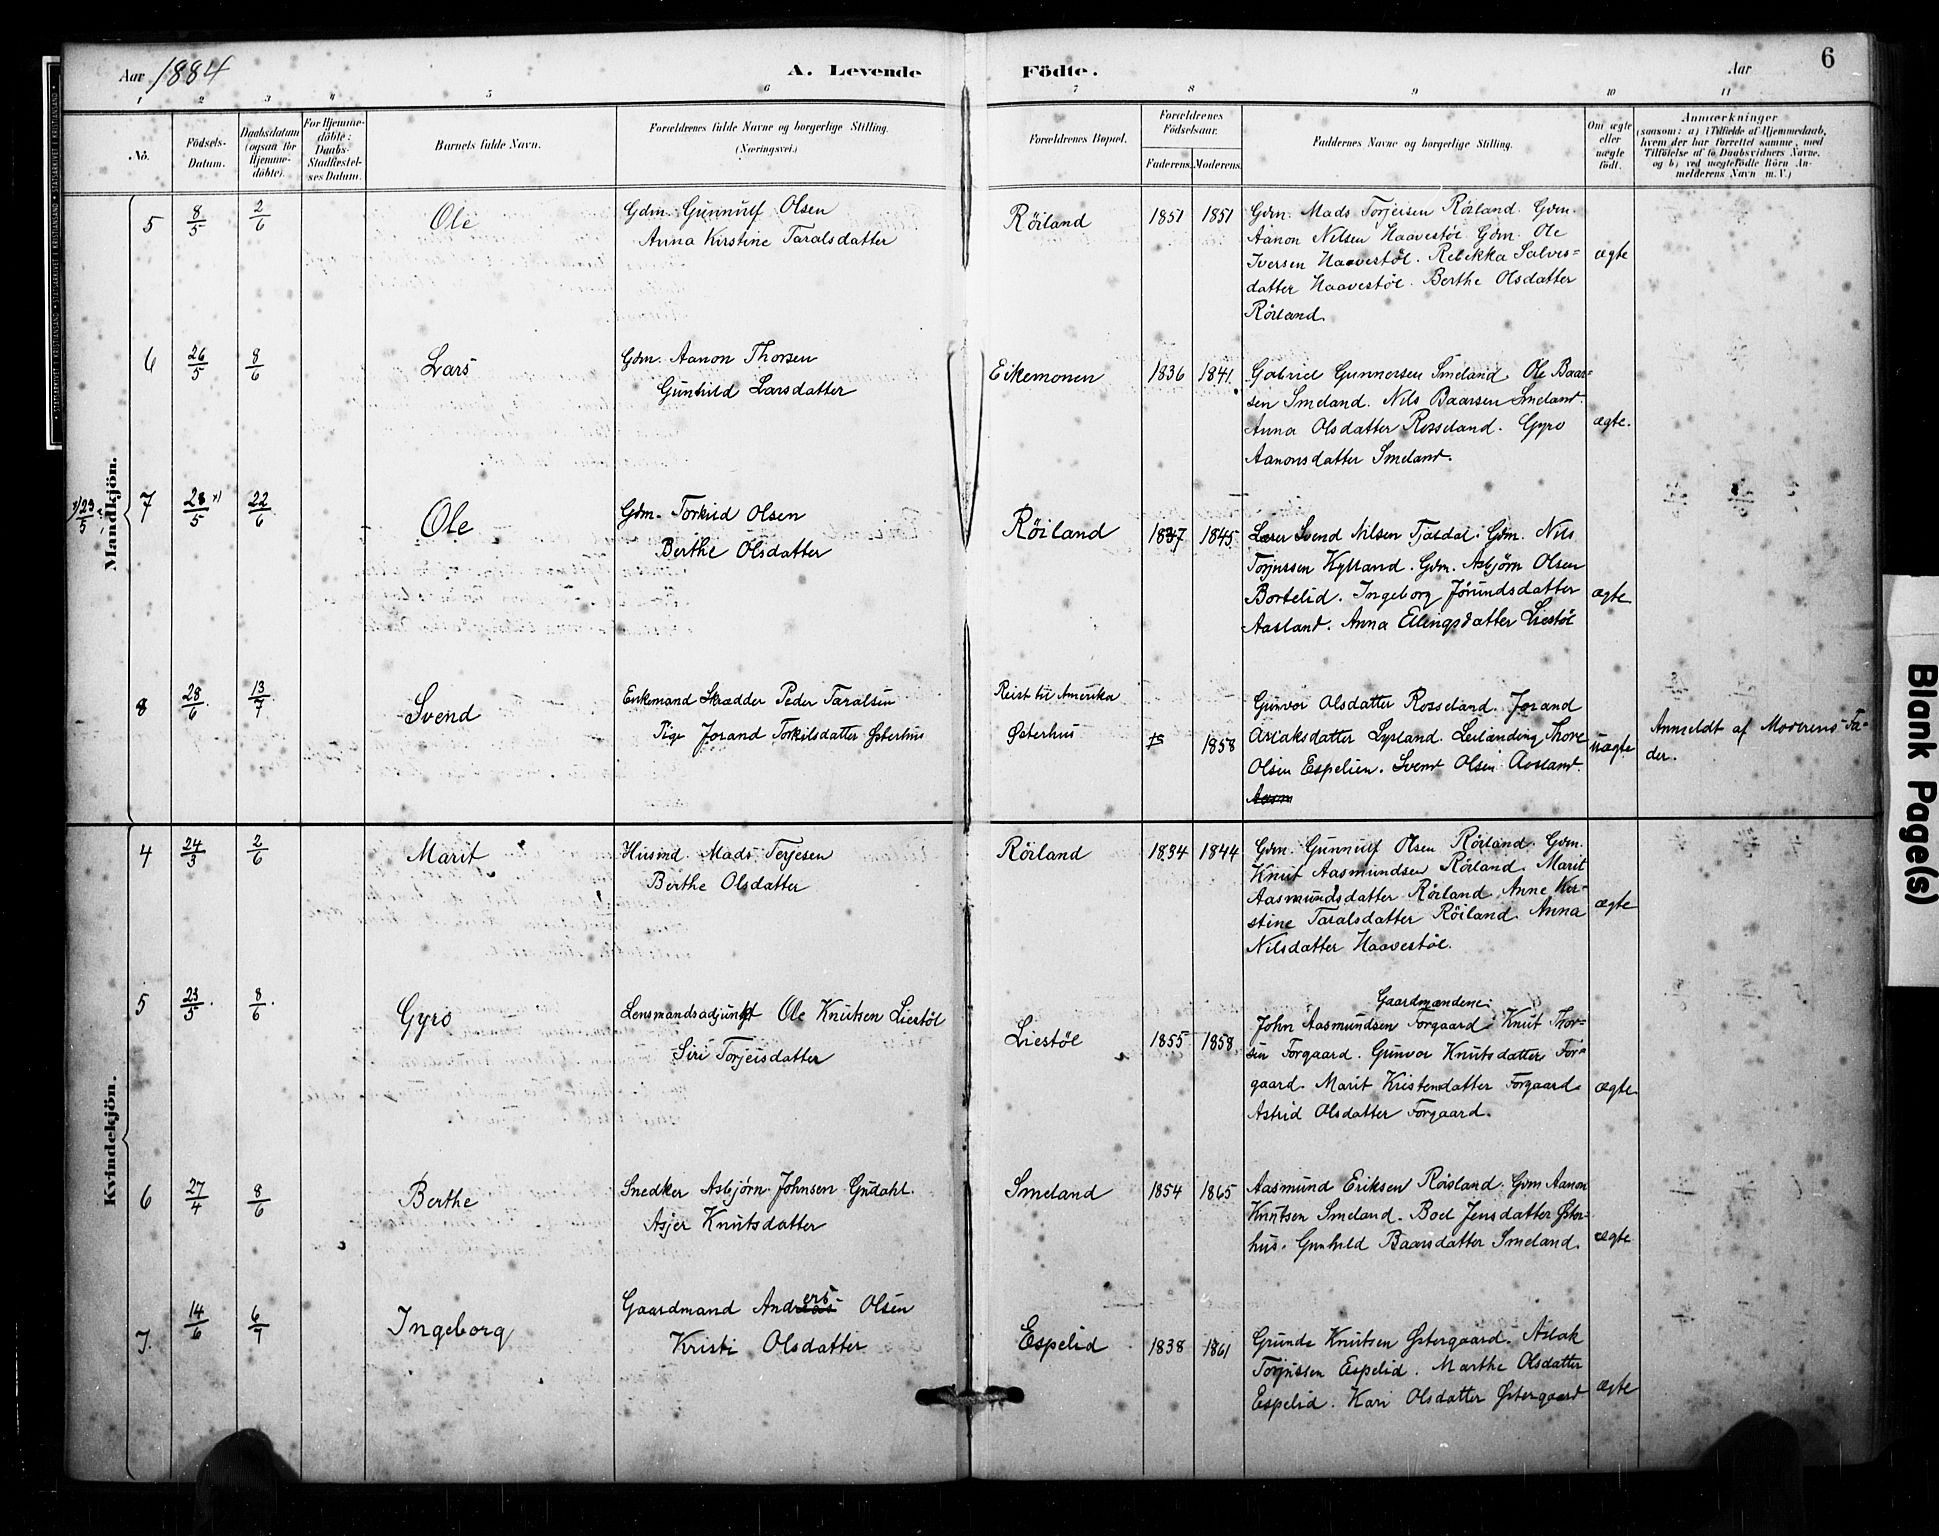 Aar 1884
A. Levende
Födte.
Aar
6
1 2 3 4 5 6 7 8 9 10 11
No.
Födsels-
Datum.
Daabsdatum
(ogsaa for
Hjemme-
döbte).
For Hjemme-
döbte:
Daabs-
Stadfæstel-
ses Datum.
Barnets fulde Navn.
Forældrenes fulde Navne og borgerlige Stilling.
(Næringsvei.)
Forældrenes Bopæl.
Forældrenes
Födselsaar.
Faderens. Moderens.
Faddernes Navne og borgerlige Stilling.
Om ægte
eller
uægte
födt.
Anmærkninger
(saasom: a) i Tilfælde af Hjemmedaab,
hvem der har forrettet samme, med
Tilföielse af to Daabsvidners Navne,
og b) ved uægtefödte Börn An-
melderens Navn m. V.)
Mandkjön.
5 8/5 2/6 Ole
Gdm. Gunnulf Olsen
Anna Kirstine Taralsdatter
Röiland 1851 1851
Gdm. Mads Torjeisen Röiland. Gdm.
Aanon Nilsen Haavestöl Gdm. Ole
Iversen Haavestöl. Rebekka Salves=
datter Haavestöl. Berthe Olsdatter
Röiland.
ægte
6 26/5 8/6 Lars
Gdm. Aanon Thorsen
Gunhild Larsdatter
Eikemonen 1836 1841.
Gabriel Gunnersen Smeland. Ole Baar=
sen Smeland. Nils Baarsen Smeland.
Anna Olsdatter Rosseland. Gyro
Aanonsdatter Smeland.
ægte.
x/ 23/5
7 28/5 x) 22/6 Ole
Gdm. Torkild Olsen
Berthe Olsdatter
Röiland 1847 1845
Lærer Svend Nilsen Tjasdal. Gdm. Nils
Torjussen Kylland. Gdm. Asbjørn Olsen
Bortelid. Ingeborg Jörundsdatter
Aasland. Anna Ellingsdatter Liestöl
ægte
8 28/6. 13/7. Svend
Enkemand Skrædder Peder Taralsen
Pige Jorand Torkilsdatter Østerhus
Reist til Amerika
Østerhus 18 1858
Gunvor Olsdatter Rosseland. Jorand
Aslaksdatter Lysland. Leilænding Thore
Olsen Espelien. Svend Olsen Aasland.
Aasm
uægte
Anmeldt af Moderens Fa=
der.
Kvindekjön.
4 24/3 2/6 Marit
Husmd. Mads Terjesen
Berthe Olsdatter
Röiland 1834 1844
Gdm. Gunnulf Olsen Röiland. Gdm.
Knut Aasmundsen Röiland. Marit
Aasmundsdatter Röiland. Anne Kir=
stine Taralsdatter Röiland. Anna
Nilsdatter Haavestöl.
ægte
5 23/5. 8/6. Gyro
Lensmandsadjunkt Ole Knutsen Liestöl
Siri Torjeisdatter
Liestöl 1855 1858
Gaardmændene:
John Aasmundsen Forgaard. Knut Thor=
sen Forgaard. Gunvor Knutsdatter For=
gaard. Marit Kristensdatter Forgaard.
Astrid Olsdatter Forgaard.
ægte.
6 27/4 8/6 Berthe
Snedker Asbjørn Johnsen Gudahl.
Asjer Knutsdatter
Smeland 1854 1865
Aasmund Eriksen Röisland. Gdm Aanon
Knutsen Smeland. Boel Jensdatter Øster=
hus. Gunhild Baarsdatter Smeland.
ægte
7. 14/6 6/7 Ingeborg
Gaardmand Andreas ers Olsen
Kristi Olsdatter
Espelid 1838 1861
Grunde Knutsen Østergaard. Aslak
Torjussen Espelid. Marthe Olsdatter
Espelid. Kari Olsdatter Østergaard
ægte
Blank Page(s)